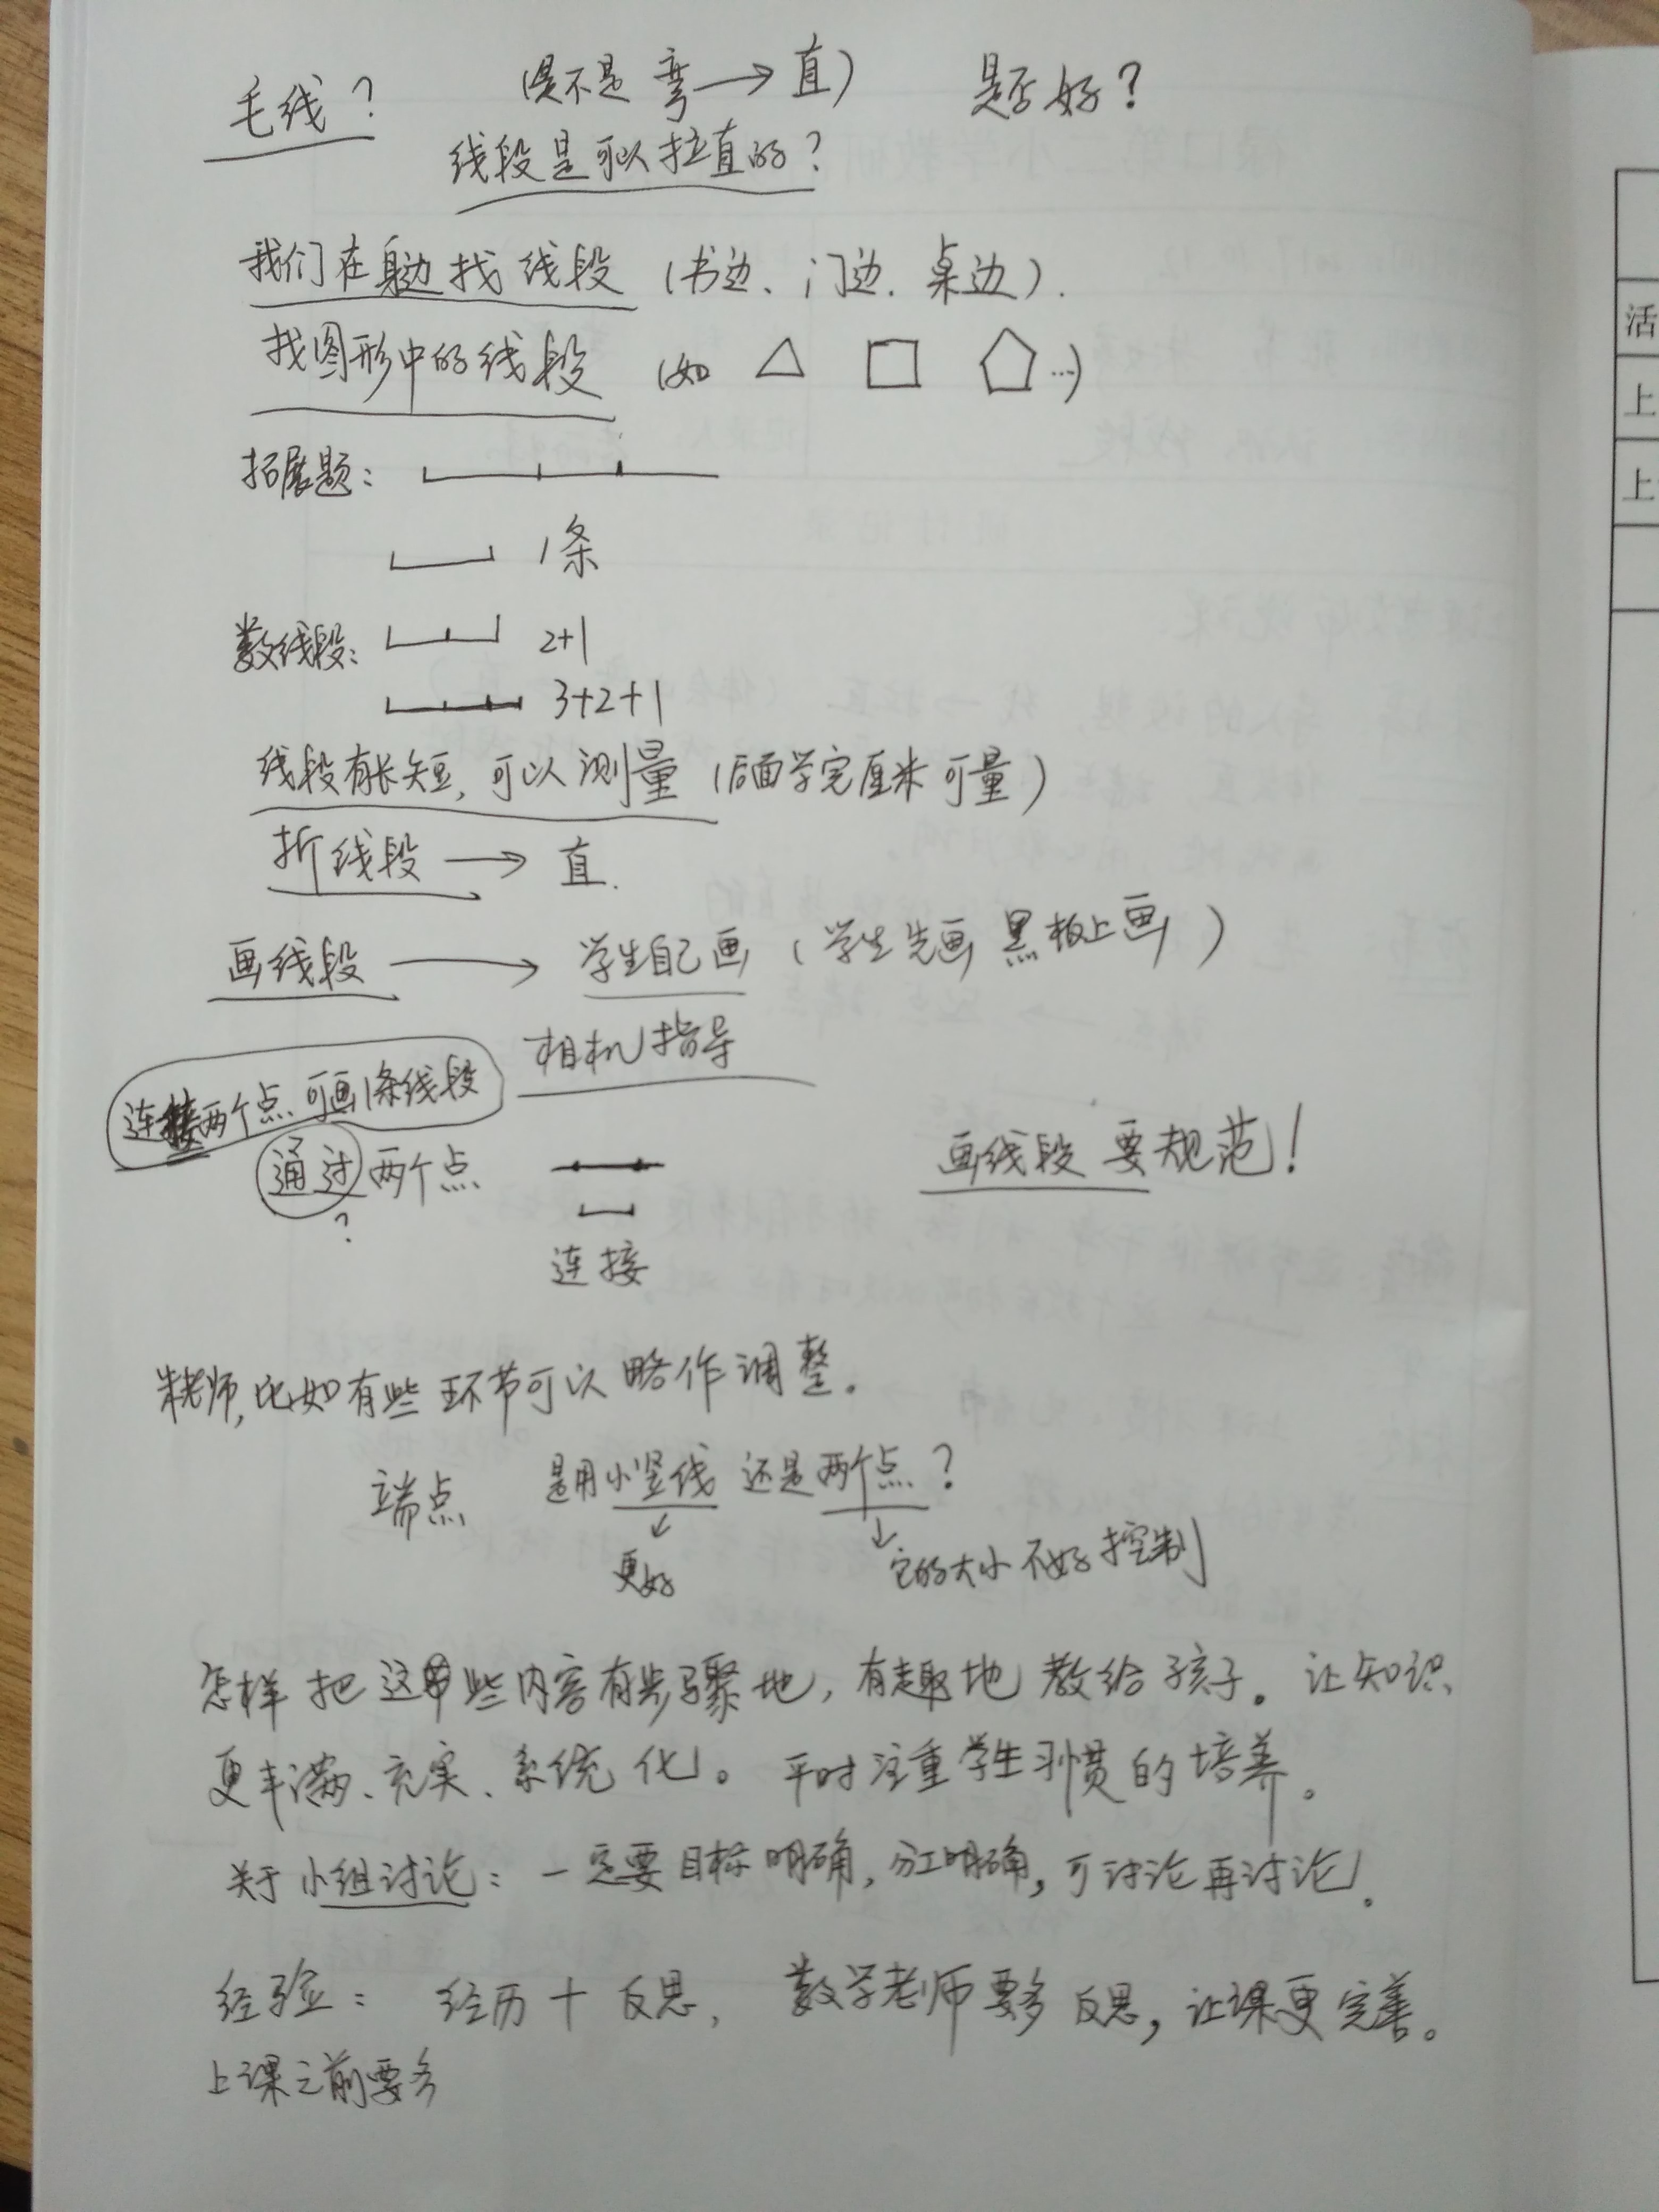 毛线？ (是不是 弯→直) 是否好？
线段是可以拉直的？
我们在身边找线段 (书边、门边、桌边).
找图形中的线段 (如 △ □ ⬠ …)
拓展题：
1条
数线段： 2+1
3+2+1
线段有长短，可以测量 (后面学完厘米可量)
折线段 → 直.
画线段 → 学生自己画 (学生先画 黑板上画)
相机指导
连接两个点可画1条线段
通过两个点
?
画线段 要规范！
连接
朱老师，比如有些环节可以略作调整。
端点 是用小竖线 还是两个点？
更好 它的大小不好控制
怎样把这些内容有步骤地，有趣地教给孩子。让知识
更丰满、充实、系统化。平时注重学生习惯的培养。
关于小组讨论：一定要目标明确，分工明确，可讨论再讨论。
经验： 经历+反思， 数学老师要多反思，让课更完善。
上课之前要多
活
上
上